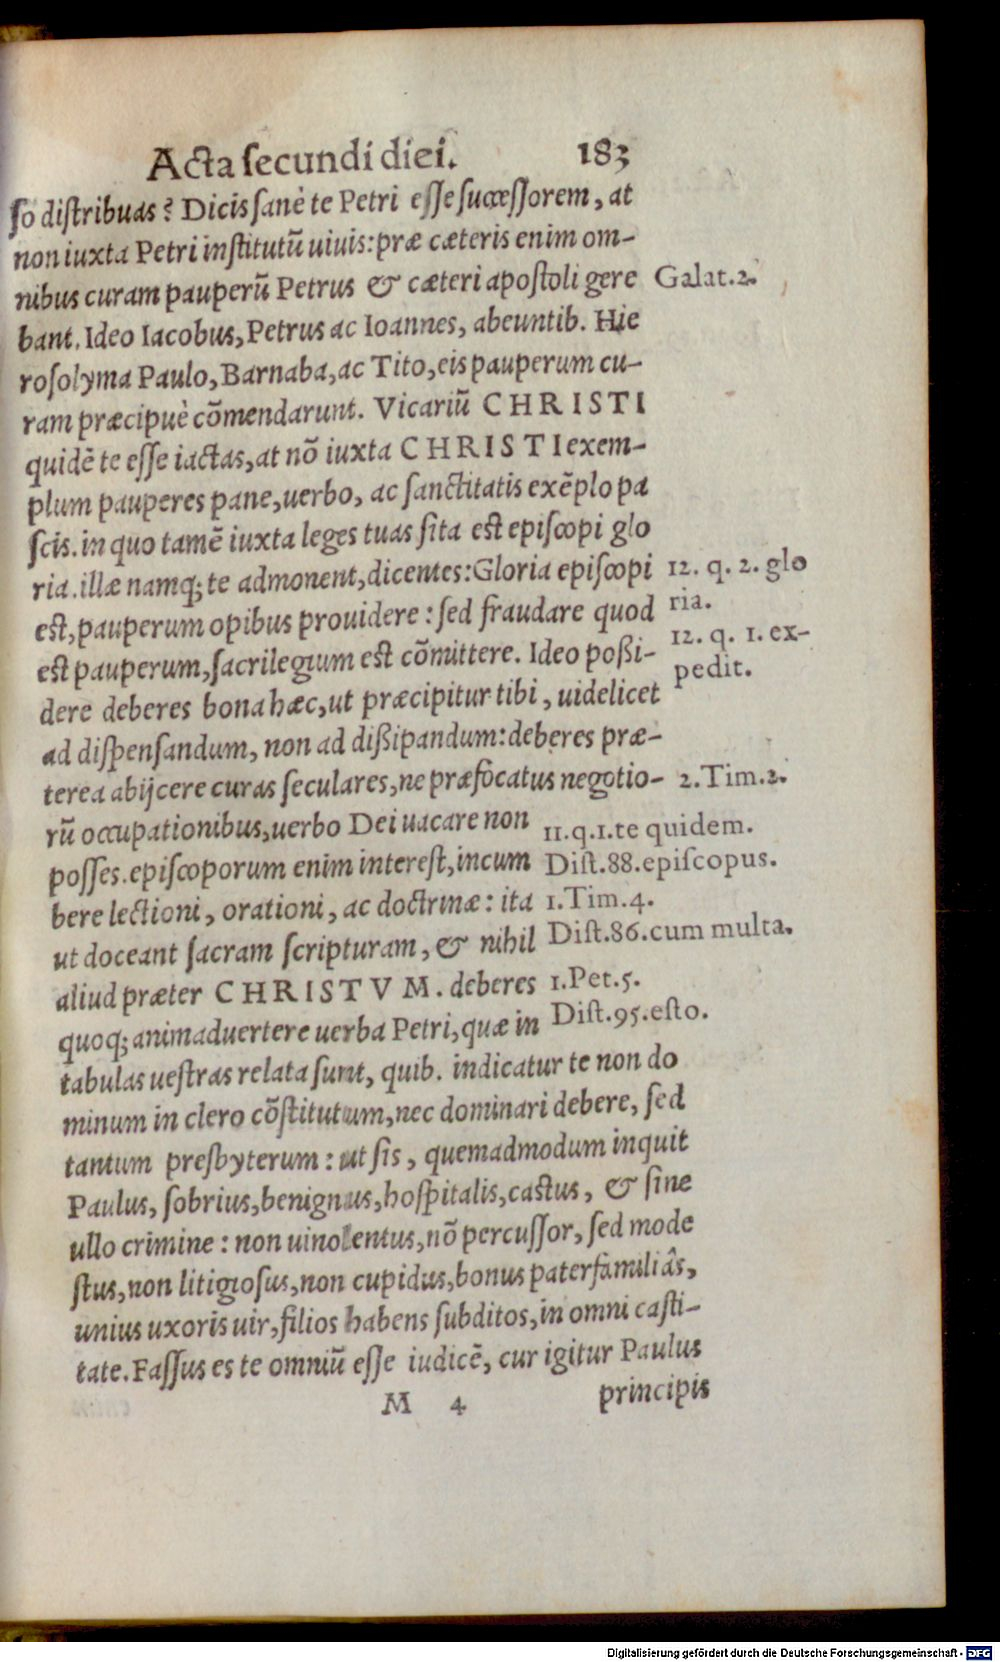 Acta secundi diei. 183
so distribuas? Dicis sanè te Petri esse successorem, at
non iuxta Petri institutū uiuis: præ cæteris enim om-
nibus curam pauperū Petrus & cæteri apostoli gere
Galat.2.
bant. Ideo Iacobus, Petrus ac Ioannes, abeuntib. Hie
rosolyma Paulo, Barnaba, ac Tito, eis pauperum cu-
ram præcipuè cōmendarunt. Vicariū CHRISTI
quidē te esse iactas, at nō iuxta CHRISTI exem-
plum pauperes pane, uerbo, ac sanctitatis exēplo pa
scis. in quo tamē iuxta leges tuas sita est episcopi glo
ria. illæ namq; te admonent, dicentes: Gloria episcopi
12. q. 2. glo
ria.
est, pauperum opibus prouidere: sed fraudare quod
12. q. 1. ex-
pedit.
est pauperum, sacrilegium est cōmittere. Ideo poßi-
dere deberes bona hæc, ut præcipitur tibi, uidelicet
ad dispensandum, non ad dißipandum: deberes præ-
terea abijcere curas seculares, ne præfocatus negotio-
2.Tim.2.
rū occupationibus, uerbo Dei uacare non
11.q.1.te quidem.
posses. episcoporum enim interest, incum
Dist.88.episcopus.
bere lectioni, orationi, ac doctrinæ: ita
1.Tim.4.
ut doceant sacram scripturam, & nihil
Dist.86.cum multa.
aliud præter CHRISTVM. deberes
1.Pet.5.
quoq; animaduertere uerba Petri, quæ in
Dist.95.esto.
tabulas uestras relata sunt, quib. indicatur te non do
minum in clero cōstitutum, nec dominari debere, sed
tantum presbyterum: ut sis, quemadmodum inquit
Paulus, sobrius, benignus, hospitalis, castus, & sine
ullo crimine: non uinolentus, nō percussor, sed mode
stus, non litigiosus, non cupidus, bonus paterfamiliâs,
unius uxoris uir, filios habens subditos, in omni casti-
tate. Fassus es te omniū esse iudicē, cur igitur Paulus
M 4 principis
Digitalisierung gefördert durch die Deutsche Forschungsgemeinschaft - DFG